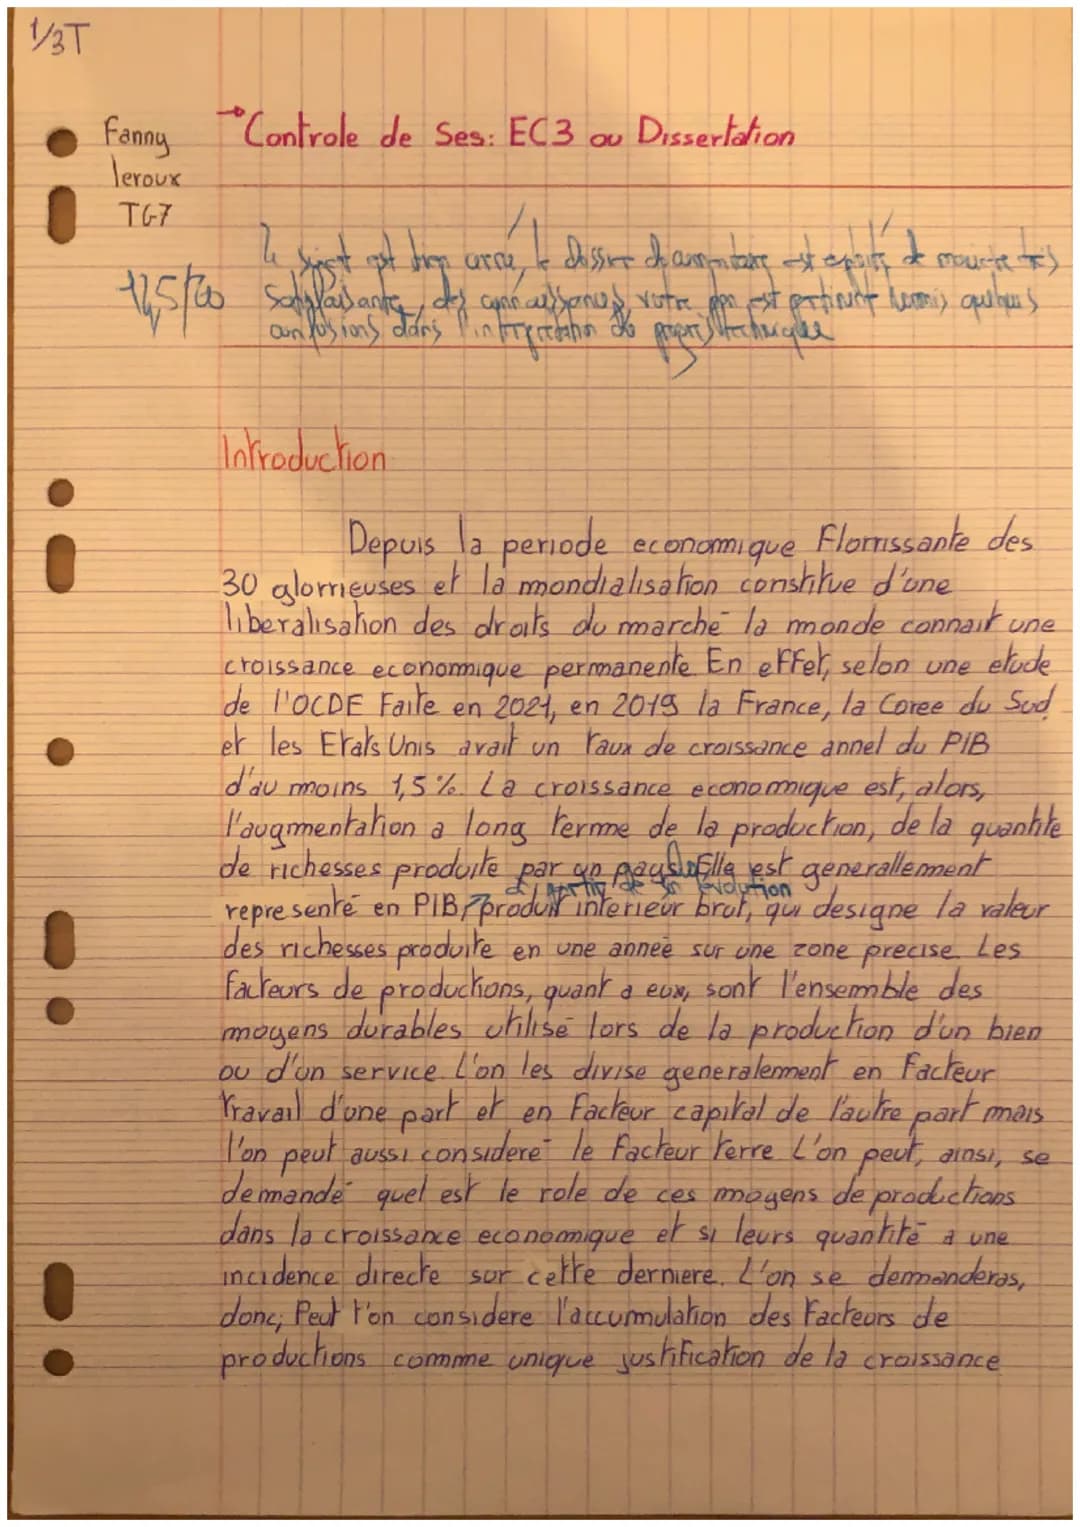 1/3T
→Controle de Ses: EC3 ou Dissertation
Fanny
leroux
TG7
Le sujet est bien cerné, le dossier documentaire est exploité de manière très
satisfaisante, des connaissances votre ppn est pertinent hormis quelques
confusions dans l'interprétation de propos technique
Introduction
Depuis la periode economique Florrissante des
30 glorrieuses et la mondialisation constitue d'une
liberalisation des droits du marché la monde connait une
croissance economique permanente. En effet, selon une etude
de l'OCDE Faite en 2021, en 2019 la France, la Coree du Sud
et les Etats Unis avait un taux de croissance annel du PIB
d'au moins 1,5%. La croissance economique est, alors,
l'augmentation a long terme de la production, de la quantite
de richesses produite par un pays. Elle est generallement
à partir de son évolution
representé en PIB, produit interieur brut, qui designe la valeur
des richesses produite en une année sur une zone precise. Les
Facteurs de productions, quant a eux, sont l'ensemble des
moyens durables utilisé lors de la production d'un bien
ou d'un service. L'on les divise generalement en Facteur
Travail d'une part et en Facteur capital de l'autre part mais
l'on peut aussi consideré le Facteur terre. L'on peut, ainsi, se
demandé quel est le role de ces moyens de productions
dans la croissance economique et si leurs quantité a une
incidence directe sur cette derniere. L'on se demmanderas,
donc; Peut t'on considere l'accumulation des Facteurs de
productions commme unique justification de la croissance